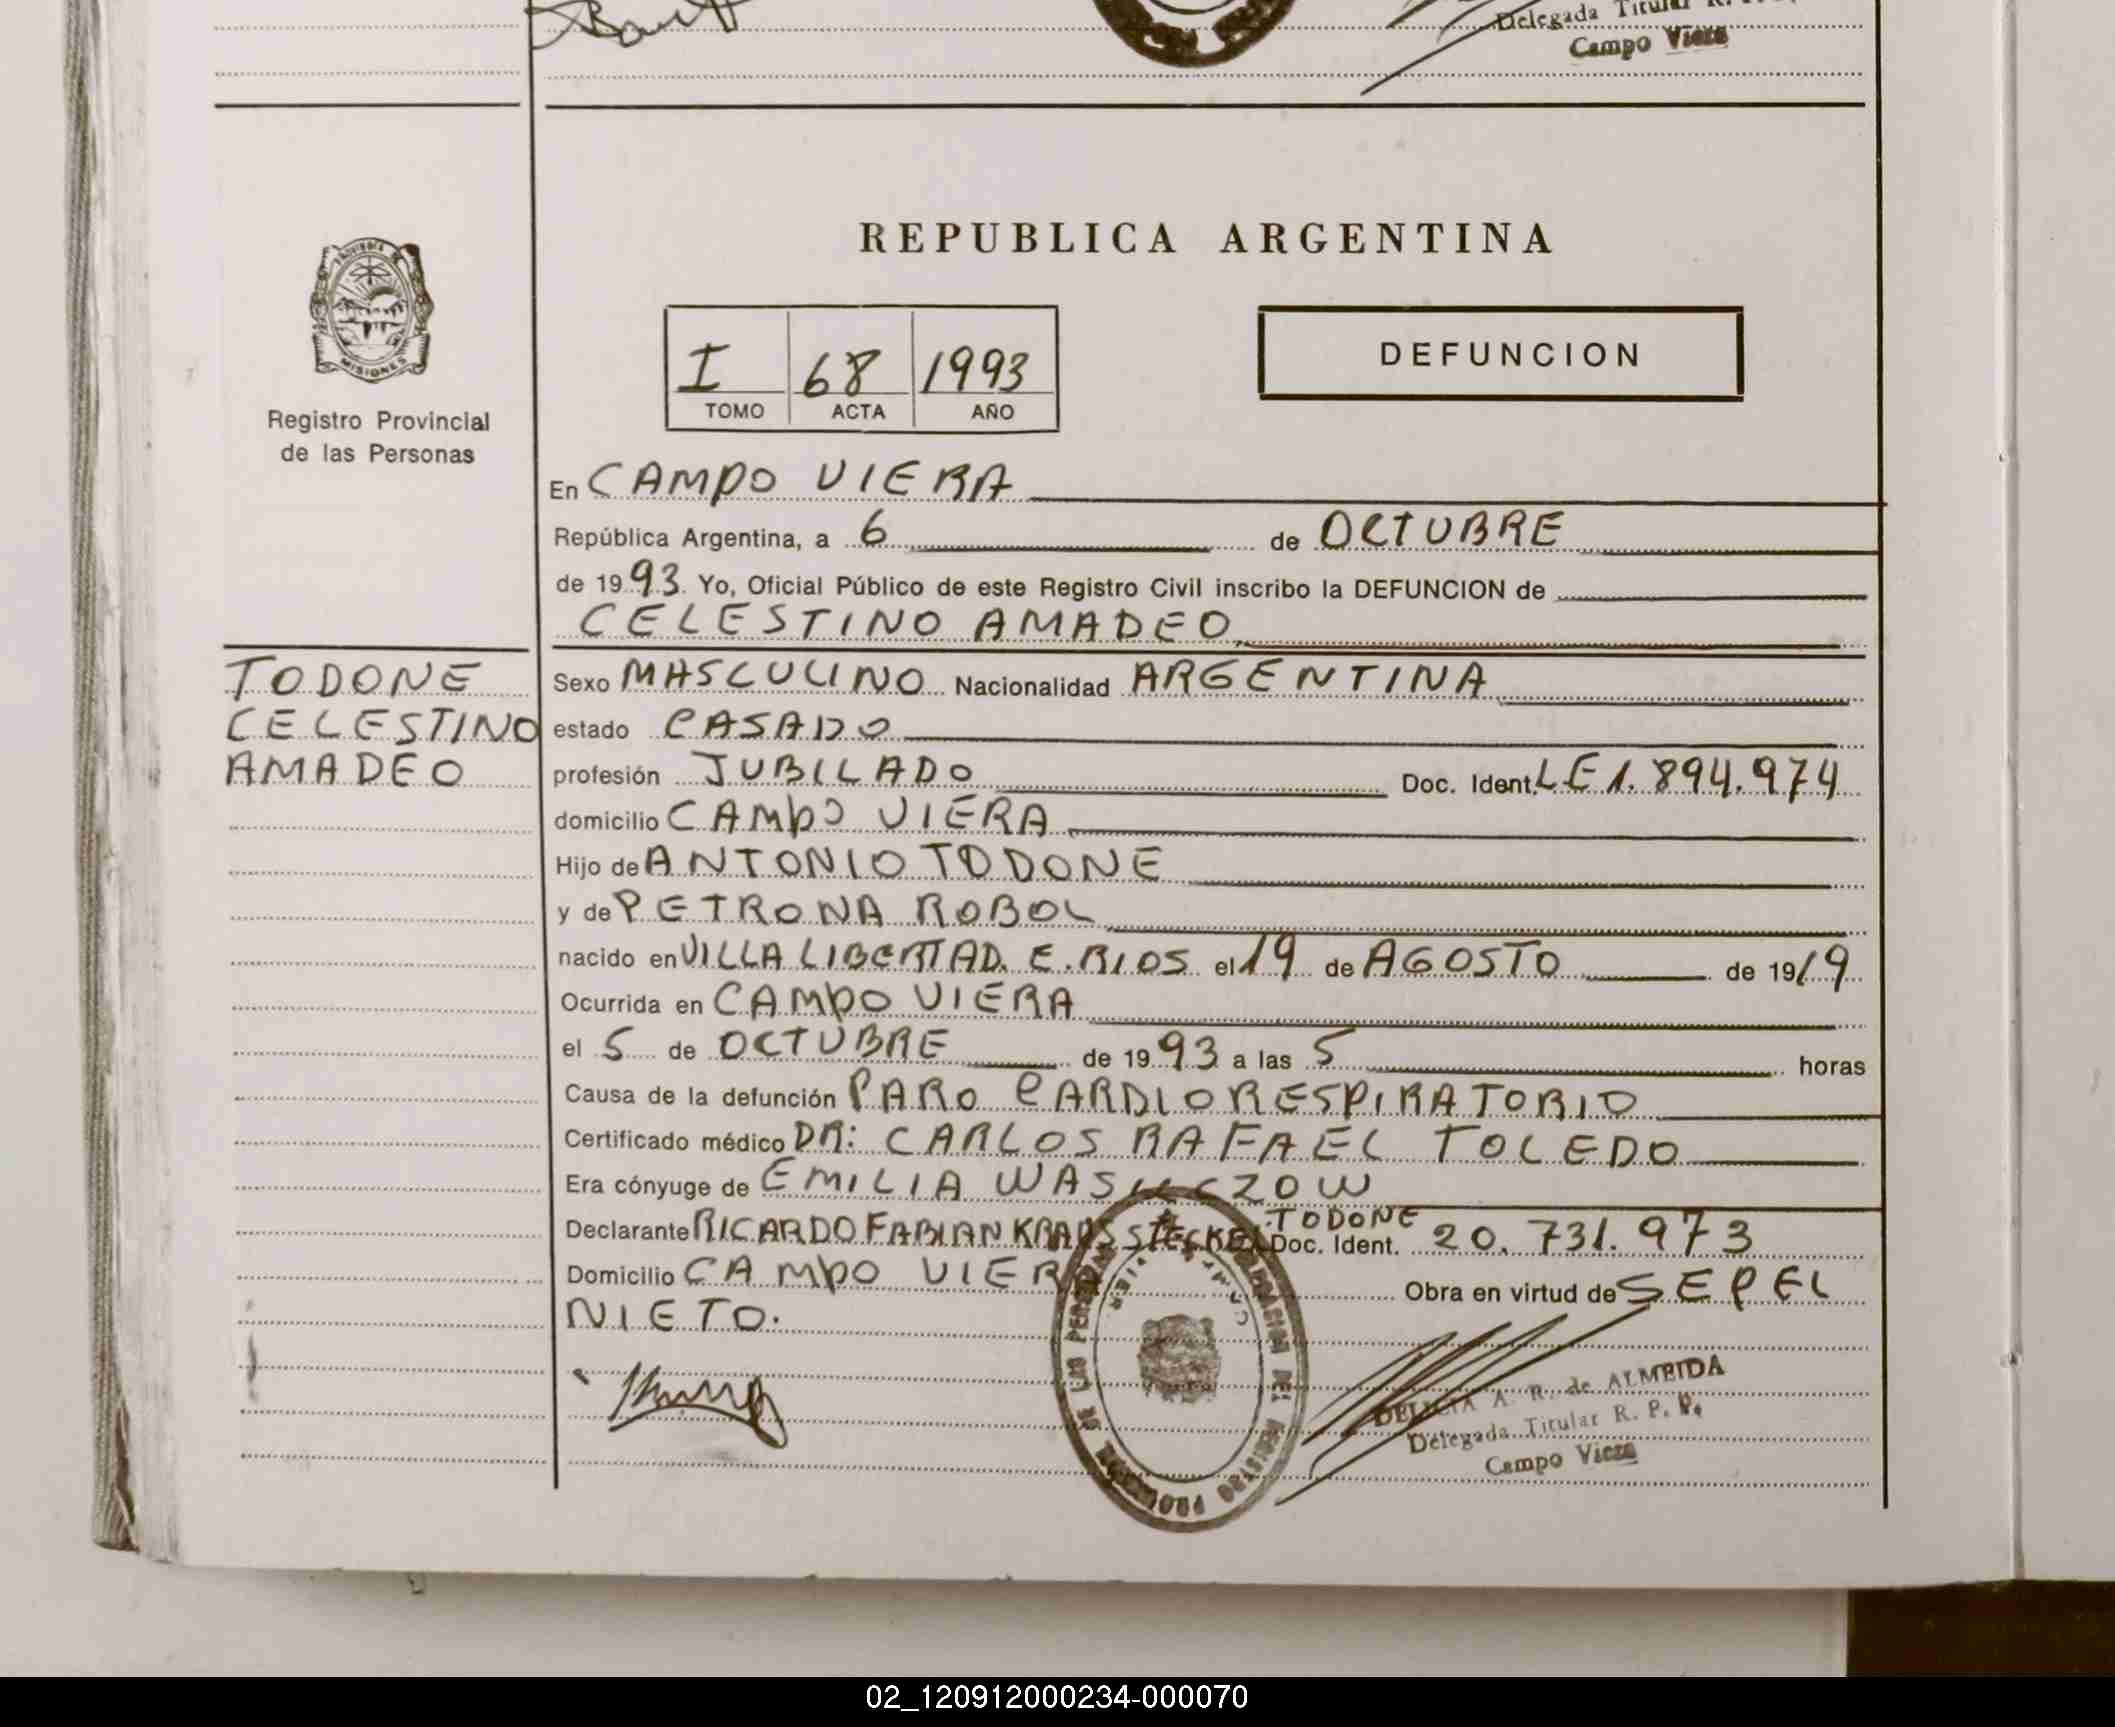 Delegada Titular R. P. P.
Campo Viera
REPUBLICA ARGENTINA
PROVINCIA
MISIONES
Registro Provincial
de las Personas
I 68 1993
TOMO ACTA AÑO
DEFUNCION
En CAMPO VIERA
República Argentina, a 6 de OCTUBRE
de 1993 Yo, Oficial Público de este Registro Civil inscribo la DEFUNCION de
CELESTINO AMADEO
TODONE
CELESTINO
AMADEO
Sexo MASCULINO Nacionalidad ARGENTINA
estado CASADO
profesión JUBILADO Doc. Ident. LE 1.894.974
domicilio CAMPO VIERA
Hijo de ANTONIO TODONE
y de PETRONA ROBOL
nacido en VILLA LIBERTAD. E. RIOS el 19 de AGOSTO de 1919
Ocurrida en CAMPO VIERA
el 5 de OCTUBRE de 1993 a las 5 horas
Causa de la defunción PARO CARDIORESPIRATORIO
Certificado médico DR: CARLOS RAFAEL TOLEDO
Era cónyuge de EMILIA
Declarante RICARDO FABIAN TODONE Doc. Ident. 20.731.973
Domicilio CAMPO VIERA Obra en virtud de SEPEL
NIETO.
DELEGACION DEL REGISTRO PROVINCIAL DE LAS PERSONAS
DELICIA A. R. de ALMEIDA
Delegada Titular R. P. P.
Campo Viera
02_120912000234-000070